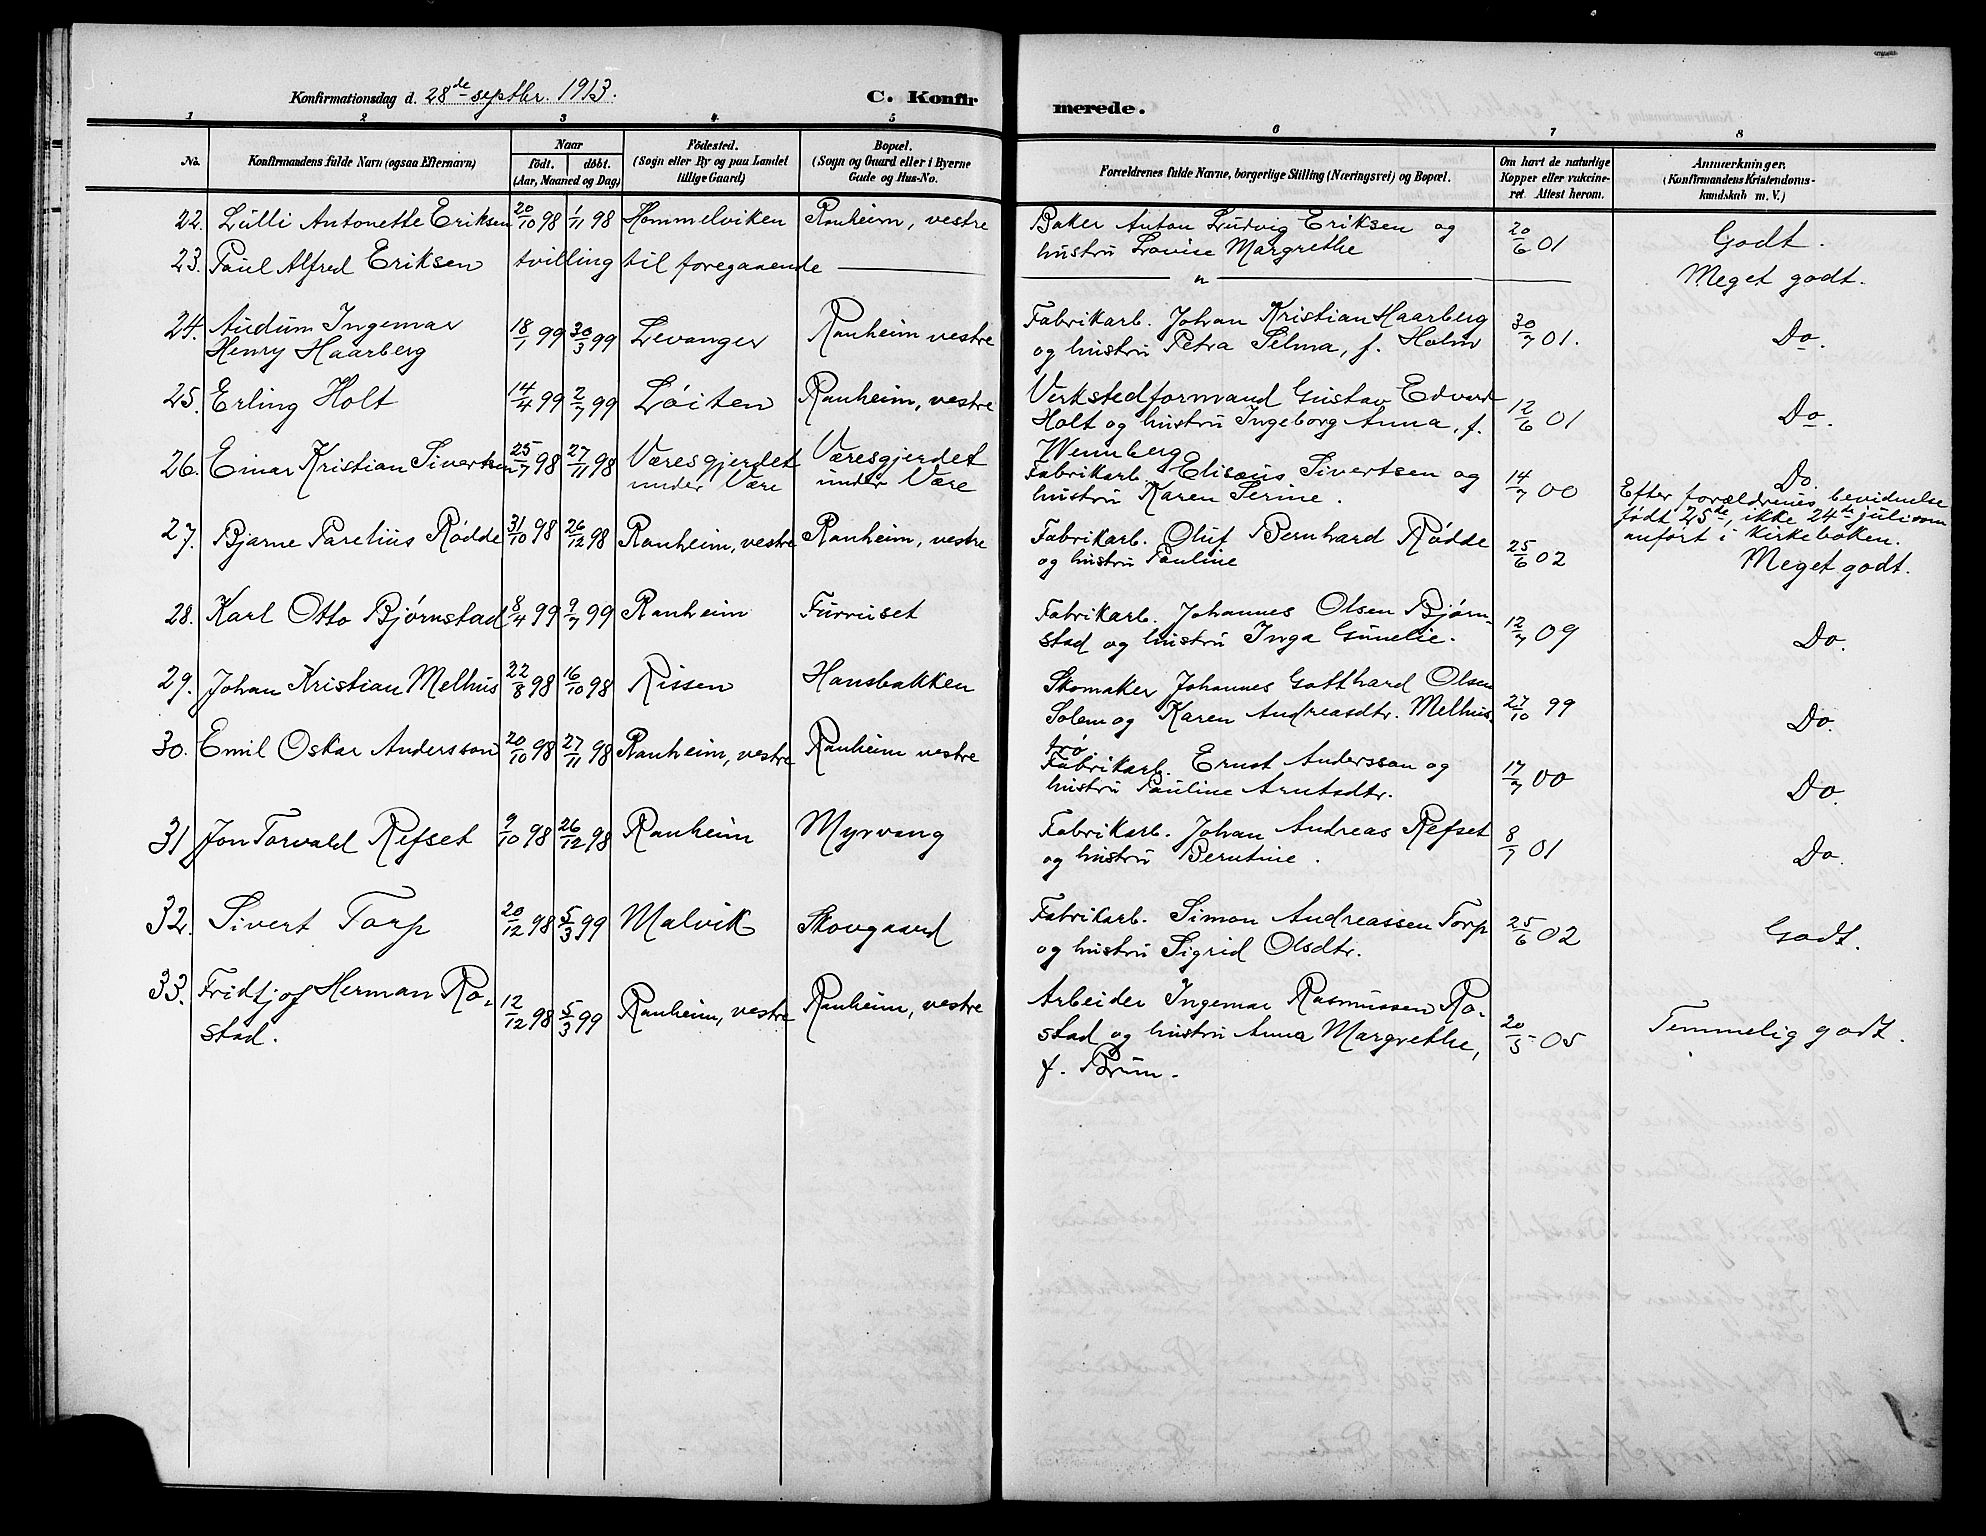 Konfirmationsdag d. 28de septbr. 1913. C. Konfir merede.
1 2 3 4 5 6 7 8
No. Konfirmandens fulde Navn (ogsaa Efternavn) Naar født. døbt. (Aar, Maaned og Dag) Fødested. (Sogn eller By og paa Landet tillige Gaard) Bopæl. (Sogn og Gaard eller i Byerne Gade og Hus-No. Forældrenes fulde Navne, borgerlige Stilling (Næringsvei) og Bopæl. Om havt de naturlige Kopper eller vakcineret. Attest herom. Anmærkninger. (Konfirmandens Kristendomskundskab m. V.)
22. Lulli Antonette Eriksen 20/10 98 1/11 98 Hommelviken Ranheim, vestre Baker Anton Ludvig Eriksen og
hustru Lovise Margrethe 20/6 01 Godt.
23. Paul Alfred Eriksen tvilling til foregaaende — " — Meget godt.
24. Audum Ingemar
Henry Haarberg 18/1 99 30/3 99 Levanger Ranheim vestre Fabrikarb. Johan Kristian Haarberg
og hustru Petra Selma, f. Holm 30/7 01. Do.
25. Erling Holt 14/4 99 2/7 99 Løiten Ranheim, vestre Verkstedformand Gustav Edvard
Holt og hustru Ingeborg Anna, f.
Wennberg 12/6 01 Do.
26. Einar Kristian Sivertsen 25/7 98 27/11 98 Væresgjerdet
under Være Væresgjerdet
under Være Fabrikarb. Elisæus Sivertsen og
hustru Karen Serine. 14/7 00 Do.
Efter forældrenes bevidnelse
født 25de, ikke 24de juli som
anført i kirkeboken.
27. Bjarne Parelius Rødde 31/10 98 26/12 98 Ranheim, vestre Ranheim, vestre Fabrikarb. Oluf Bernhard Rødde
og hustru Pauline 25/6 02 Meget godt.
28. Karl Otto Bjørnstad 8/4 99 9/7 99 Ranheim Furruset Fabrikarb. Johannes Olsen Bjørn-
stad og hustru Inga Gunelie. 12/7 09 Do.
29. Johan Kristian Melhus 22/8 98 16/10 98 Rissen Hansbakken Skomaker Johannes Gotthard Olsen
Solem og Karen Andreasdtr. Melhus
trø 27/10 99 Do.
30. Emil Oskar Andersson 20/10 98 27/11 98 Ranheim, vestre Ranheim vestre Fabrikarb. Ernst Andersson og
hustru Pauline Arntsdtr. 17/7 00 Do.
31 Jon Torvald Refset 9/10 98 26/12 98 Ranheim Myrvang Fabrikarb. Johan Andreas Refset
og hustru Berntine. 8/7 01 Do.
32. Sivert Torp 20/12 98 5/3 99 Malvik Skovgaard Fabrikarb. Simon Andreassen Torp
og hustru Sigrid Olsdtr. 25/6 02 Godt.
33. Fridtjof Herman Ro-
stad. 12/12 98 5/3 99 Ranheim, vestre Ranheim, vestre Arbeider Ingemar Rasmussen Ro-
stad og hustru Anna Margrethe,
f. Brun. 20/5 05 Temmelig godt.